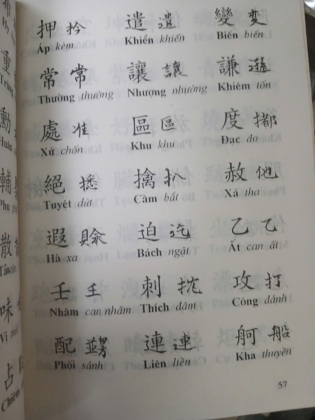 押 遣 遣 變 変
Áp kèm Khiển khiến Biến biến
常 常 讓 讓 謙 遜
Thường thường Nhượng nhường Khiêm tốn
處 准 區 區 度
Xứ chốn Khu khu Đạc đo
絕 擒 扒 赦 他
Tuyệt dứt Cầm bắt Xá tha
遐 賒 迫 迄 乙 乙
Hà xa Bách ngặt Ất can ất
壬 壬 刺 抌 攻 打
Nhâm can nhâm Thích đâm Công đánh
配 連 連 舸 船
Phối sánh Liên liền Kha thuyền
57